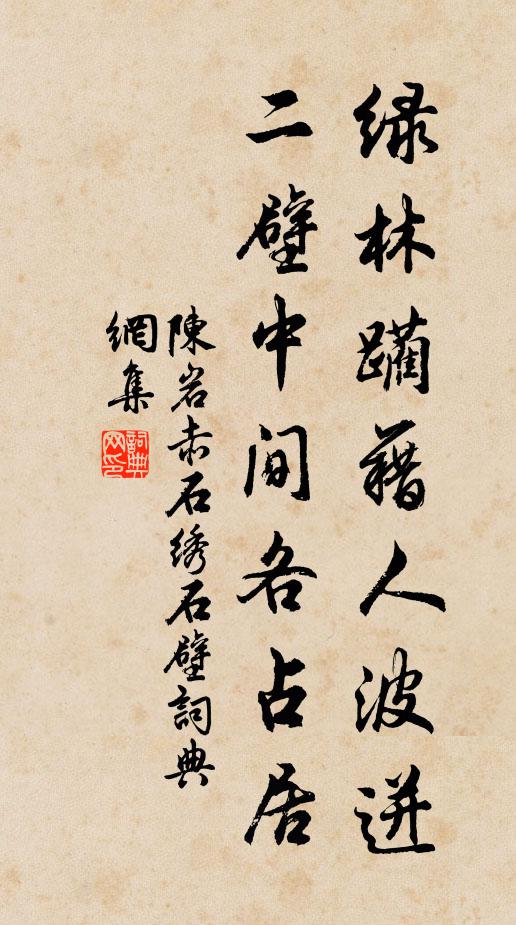 绿林躏藉人波迸
二壁中间各占居
陳岩赤石绣石壁詞典
網集
詞典
网印